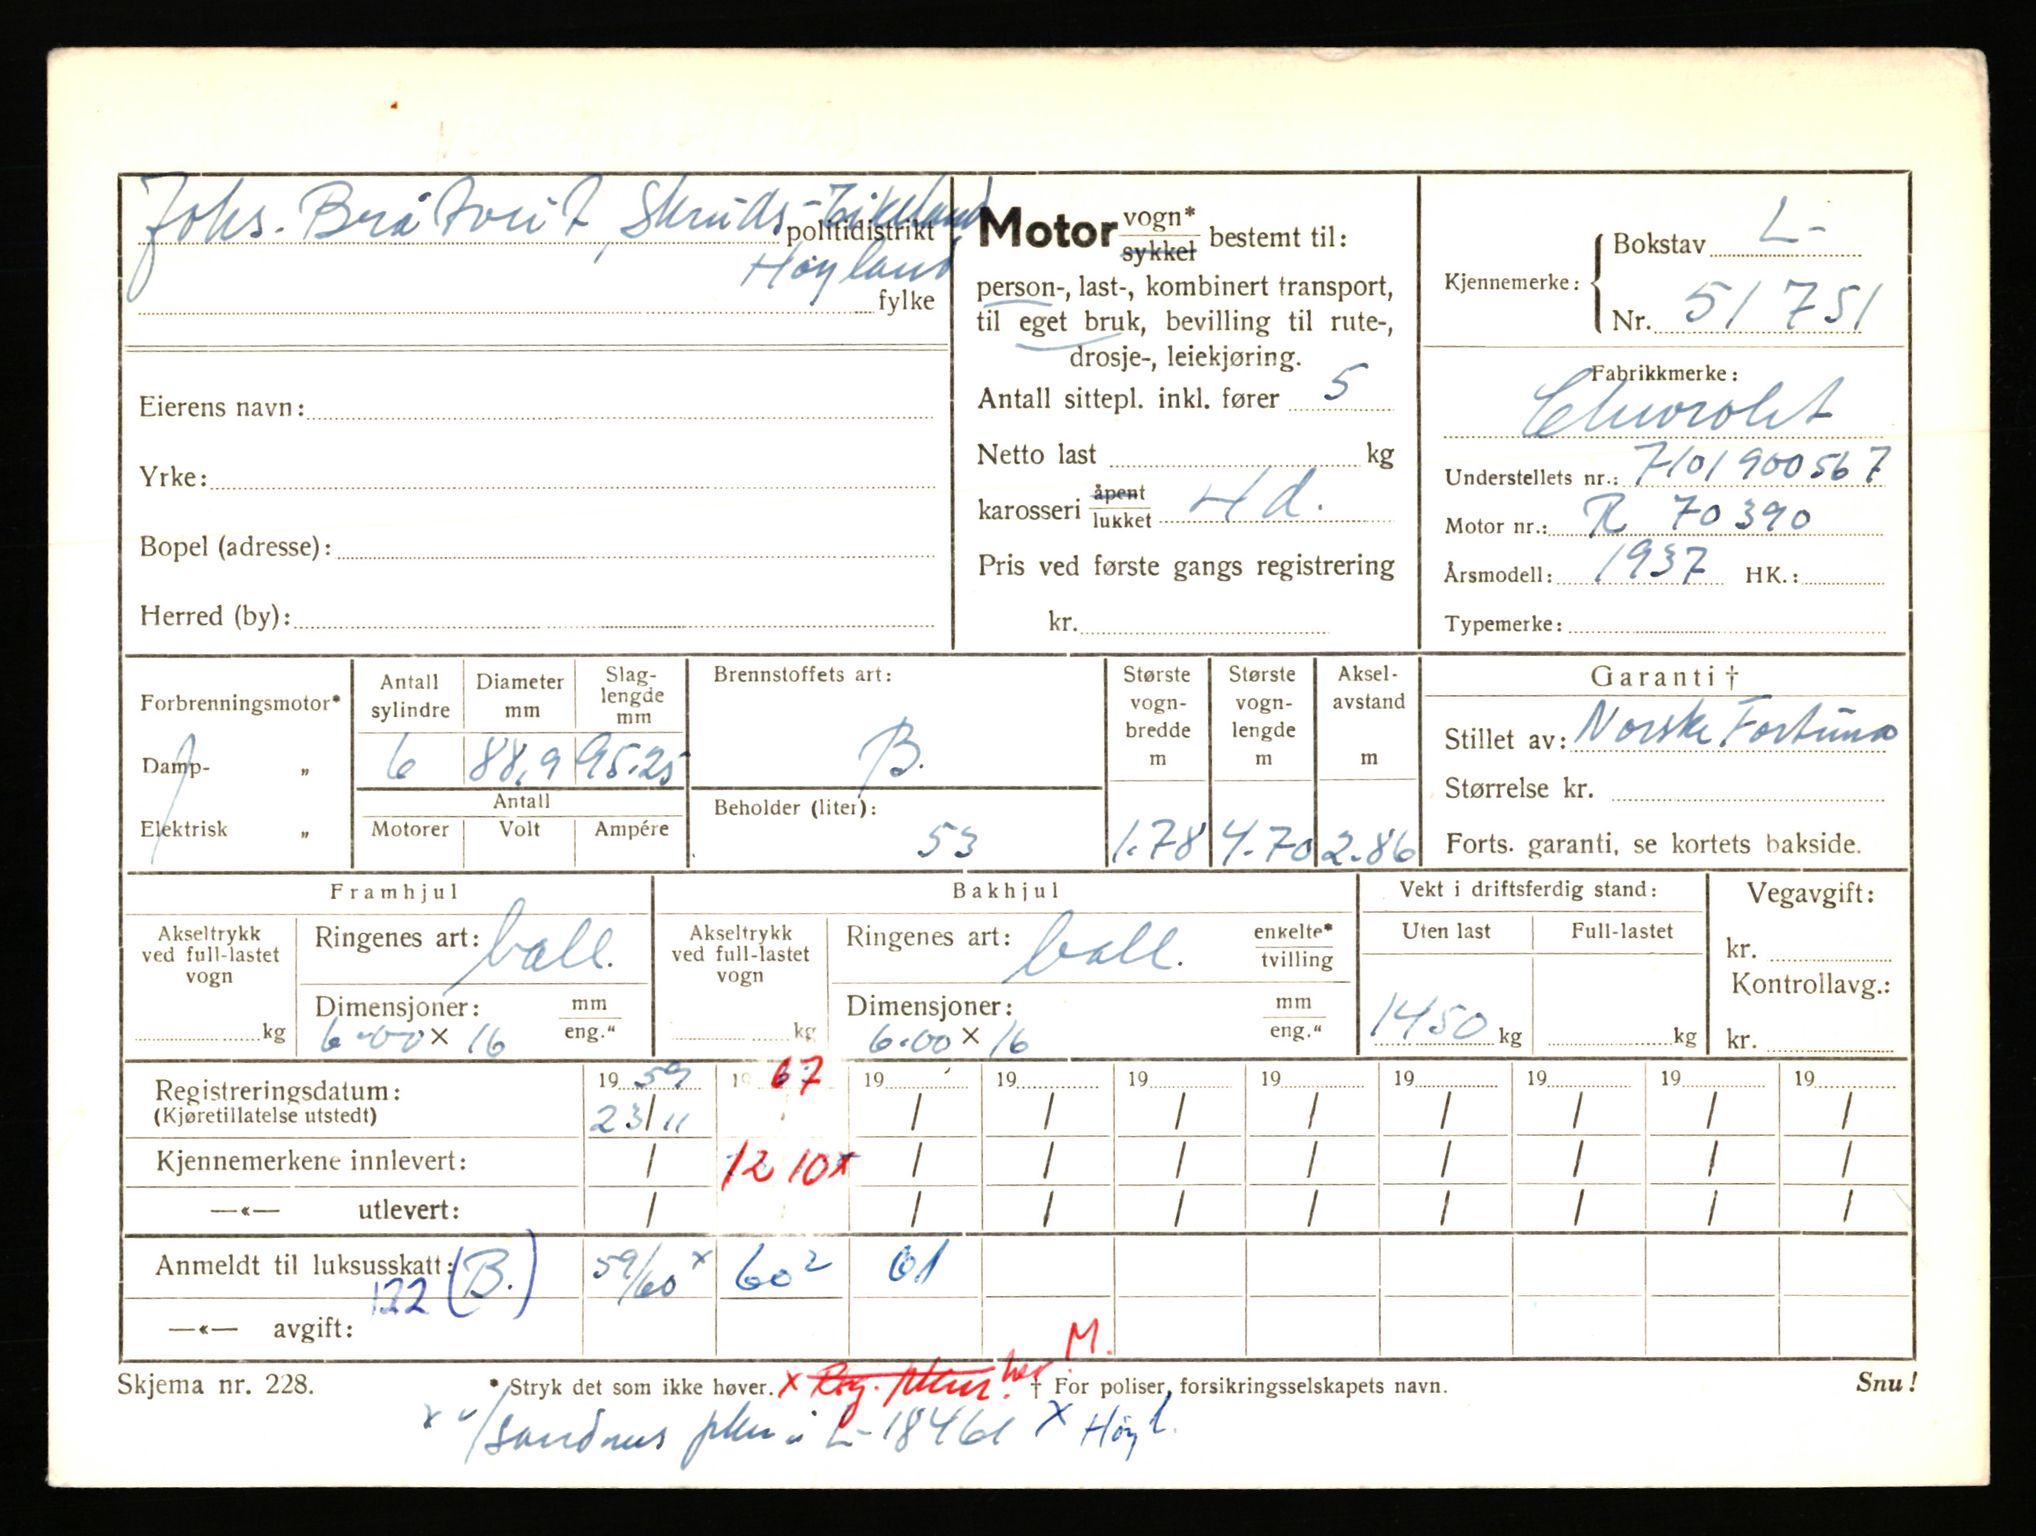 Johs. Bråtveit, Skruds-Eikeland
politidistrikt
Høyland
fylke
Eierens navn:
Yrke:
Bopel (adresse):
Herred (by):
Motor vogn*
sykkel bestemt til:
person-, last-, kombinert transport,
til eget bruk, bevilling til rute-,
drosje-, leiekjøring.
Antall sittepl. inkl. fører 5
Netto last kg
karosseri åpent
lukket 4 d.
Pris ved første gangs registrering
kr.
Kjennemerke: Bokstav L-
Nr. 51751
Fabrikkmerke:
Chevrolet
Understellets nr.: 7101900567
Motor nr.: R 70390
Årsmodell: 1937 HK.:
Typemerke:
Forbrenningsmotor*
Damp- „
Elektrisk „
Antall sylindre 6
Diameter mm 88,9
Slaglengde mm 95.25
Antall
Motorer Volt Ampére
Brennstoffets art:
B.
Beholder (liter):
53
Største vognbredde m 1.78
Største vognlengde m 4.70
Akselavstand m 2.86
Garanti †
Stillet av: Norske Fortuna
Størrelse kr.
Forts. garanti, se kortets bakside.
Framhjul
Akseltrykk ved full-lastet vogn kg
Ringenes art: ball.
Dimensjoner: mm
6.00 x 16 eng."
Bakhjul
Akseltrykk ved full-lastet vogn kg
Ringenes art: ball. enkelte*
tvilling
Dimensjoner: mm
6.00 x 16 eng."
Vekt i driftsferdig stand:
Uten last Full-lastet
1450 kg kg
Vegavgift:
kr.
Kontrollavg.:
kr.
Registreringsdatum: 19 59 19 67 19 19 19 19 19 19 19 19
(Kjøretillatelse utstedt) 23/11 / / / / / / / /
Kjennemerkene innlevert: / 12 10 x / / / / / / / /
—«— utlevert: / / / / / / / / /
Anmeldt til luksusskatt: (B.) 59/60 x 60² 61
122
—«— avgift:
M.
Skjema nr. 228. * Stryk det som ikke høver. x † For poliser, forsikringsselskapets navn. Snu!
L-18461 x Høyl.